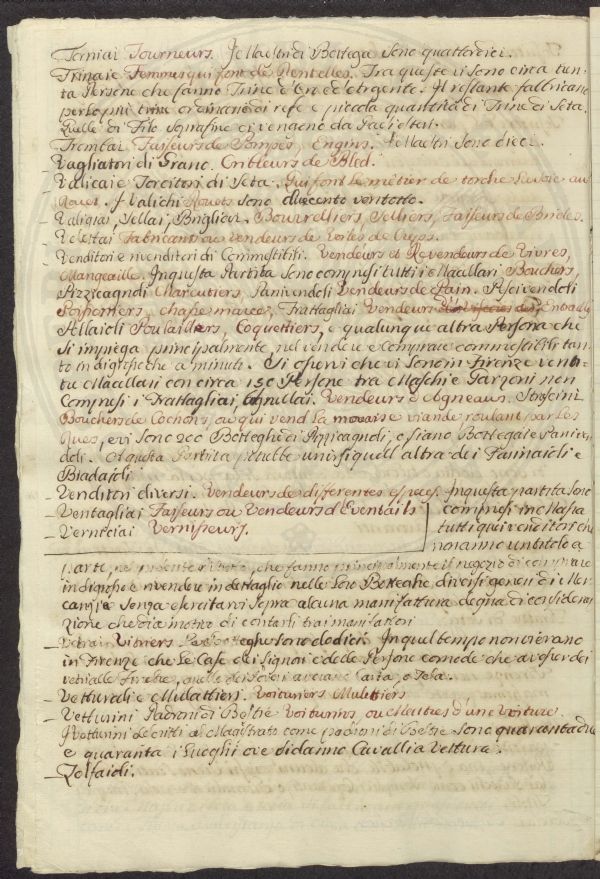 Torniai Tourneurs. Je Maestri di Bottega sono quattordici.
Trinaie Femmes qui font de Dentelles. Tra queste vi sono circa tren-
ta Persone che fanno Trine d'Oro ed'Argento. Il restante fabbricano
per lo più trine ordinarie di refe e piccola quantità di Trine di Seta.
Quelle di Filo soprafine ci vengono da Paesi esteri.
Trombai Faiseurs de Pompes, Engins. I Maestri sono dieci.
Vagliatori di Grano. Cribleurs de Bled.
Valicaie Torcitori di Seta. Qui font le métier de torche la soie au
Rouet. I Valichi Rouets sono duecento ventotto.
Valigiai, Sellai, Brigliai. Bourreliers, Selliers, Faiseurs de Brides.
Velettai Fabricants ou vendeurs de Voiles de Creps.
Venditori e rivenditori di Commestibili. Vendeurs et Revendeurs de Vivres,
Mangeaille. In questa Partita sono compresi tutti i Macellari Bouchers,
Pizzicagnoli Charcutiers, Panivendoli Vendeurs de Pain. Pescivendoli
Poissonniers, chasse marée, Frattagliai Vendeurs des Entrailles
Pollaioli Poulaillers, Coquettiers, e qualunque altra Persona che
si impiega principalmente nel vendere e comprare commestibili tan-
to in digrosso che a minuto. Si osservi che vi sono in Firenze venti-
tre Macellari con circa 150 Persone tra Maschi e Garzoni non
compresi i Frattagliai, Agnellai. Vendeurs d'Agneaux.
Bouchers de Cochons, ou qui vend la mauvaise viande roulant par les
Rues, e vi sono 200 Botteghe di Pizzicagnoli, o siano Bottegaie Paniven-
doli. A questa Partita potrebbe unirsi quell'altra dei Farinaioli e
Biadaioli.
Venditori diversi. Vendeurs de differentes especes. In questa partita sono
Ventagliai Faiseurs ou Vendeurs d'Eventails compresi in Massa
Verniciai Vernisseurs. tutti quei venditori che
non anno un titolo a
parte, che fanno principalmente il negozio di comprare
in digrosso e rivendere in dettaglio nelle loro Botteghe diversi generi di Mer-
canzie senza esercitarvi sopra alcuna manifattura degna di considera-
zione che dia motivo di contarli tra i manifattori
Vetrai Vitriers Le Botteghe sono dodici. In quel tempo non v'erano
in Firenze che le Case dei Signori e delle Persone comode che avesser dei
vetri alle finestre, quelle dei Poveri aveano Carta, o Tela.
Vetturali e Mulattieri. Voituriers Muletiers
Vetturini Padroni di Bestie Voiturins, ou Maitres d'une Voiture.
I Vetturini descritti al Magistrato come padroni di Bestie sono quarantadue
e quaranta i Luoghi ove si danno Cavalli a Vettura.
Zolfaioli.